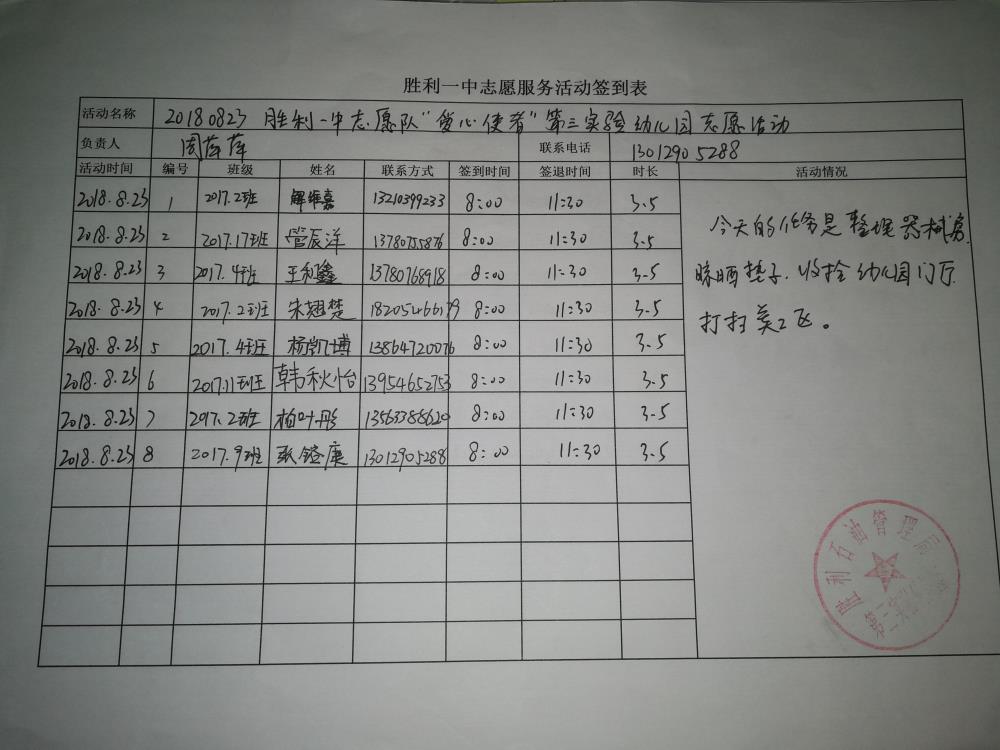 胜利一中志愿服务活动签到表
活动名称 20180823 胜利一中志愿队“爱心使者”第三实验幼儿园志愿活动
负责人 周萍萍 联系电话 13012905288
活动时间 编号 班级 姓名 联系方式 签到时间 签退时间 时长 活动情况
2018.8.23 1 2017.2班 解维嘉 13210399233 8:00 11:30 3.5
2018.8.23 2 2017.17班 管辰洋 13780755876 8:00 11:30 3.5
2018.8.23 3 2017.4班 王和鑫 13780768918 8:00 11:30 3.5
2018.8.23 4 2017.2班 宋翘楚 18205466179 8:00 11:30 3.5
2018.8.23 5 2017.4班 杨凯博 13864720076 8:00 11:30 3.5
2018.8.23 6 2017.11班 韩秋怡 13954652753 8:00 11:30 3.5
2018.8.23 7 2017.2班 柏叶彤 13563388620 8:00 11:30 3.5
2018.8.23 8 2017.9班 张 庚 13012905288 8:00 11:30 3.5
今天的任务是整理器械房,
晾晒垫子.收拾幼儿园门厅
打扫美工区。
胜利石油管理局